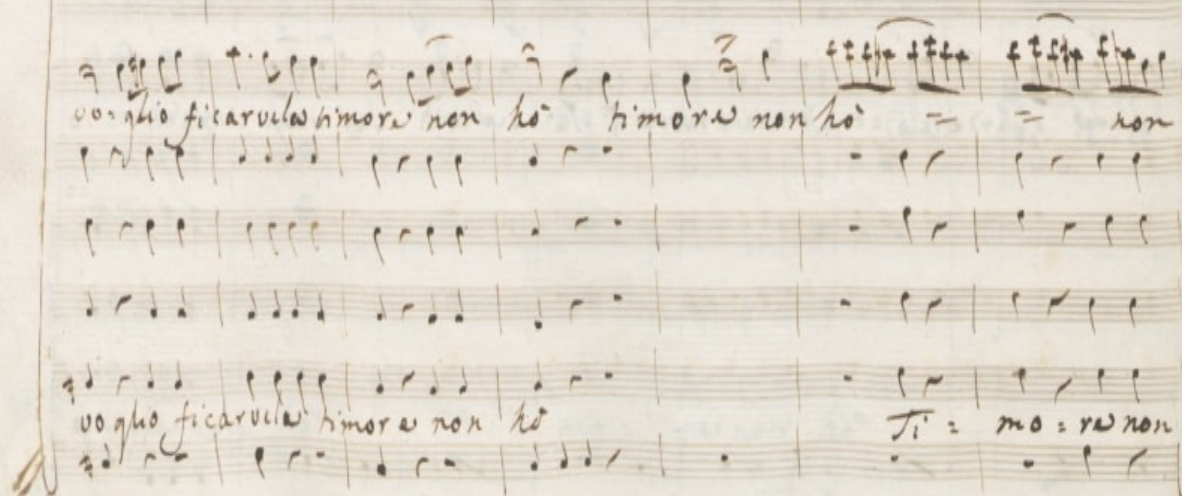 vo=glio ficarvela timore non hò timore non hò = = non
voglio ficarvela timore non hò Ti = mo = re non